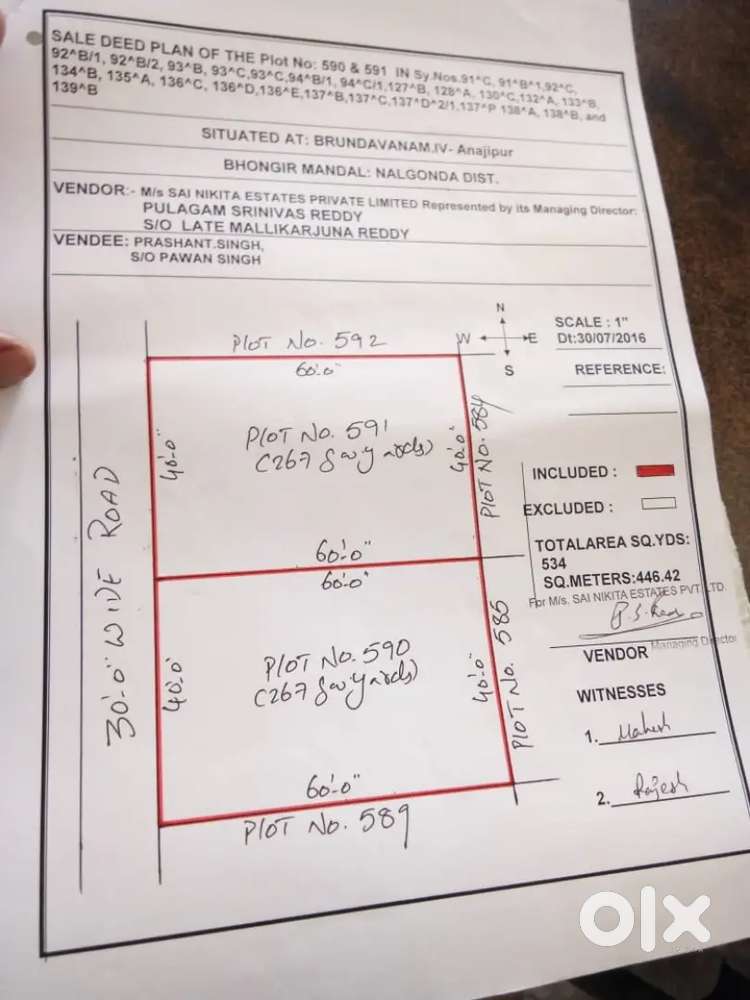 SALE DEED PLAN OF THE Plot No: 590 & 591 IN Sy.Nos.91^C, 91^B^1,92^C,
92^B/1, 92^B/2, 93^B, 93^C,93^C,94^B/1, 94^C/1,127^B, 128^A. 130^C,132^A, 133^B,
134^B, 135^A, 136^C, 136^D,136^E,137^B,137^C,137^D^2/1,137^P 138^A, 138^B, and
139^B
SITUATED AT: BRUNDAVANAM.IV- Anajipur
BHONGIR MANDAL: NALGONDA DIST.
VENDOR:- M/s SAI NIKITA ESTATES PRIVATE LIMITED Represented by its Managing Director:
PULAGAM SRINIVAS REDDY
S/O LATE MALLIKARJUNA REDDY
VENDEE: PRASHANT.SINGH,
S/O PAWAN SINGH
N
W E
S
SCALE : 1"
Dt:30/07/2016
REFERENCE:
PLOT No. 592
60'-0"
PLOT No. 591
(267 Sq yards)
40'-0"
40'-0"
PLOT No. 584
60'-0"
30'-0" WIDE ROAD
60'-0"
PLOT No. 590
(267 Sq yards)
40'-0"
40'-0"
PLOT No. 585
60'-0"
PLOT No. 589
INCLUDED :
EXCLUDED :
TOTALAREA SQ.YDS:
534
SQ.METERS:446.42
For M/s. SAI NIKITA ESTATES PVT. LTD.
Managing Director
VENDOR
WITNESSES
1. Mahesh
2. Rajesh
olx